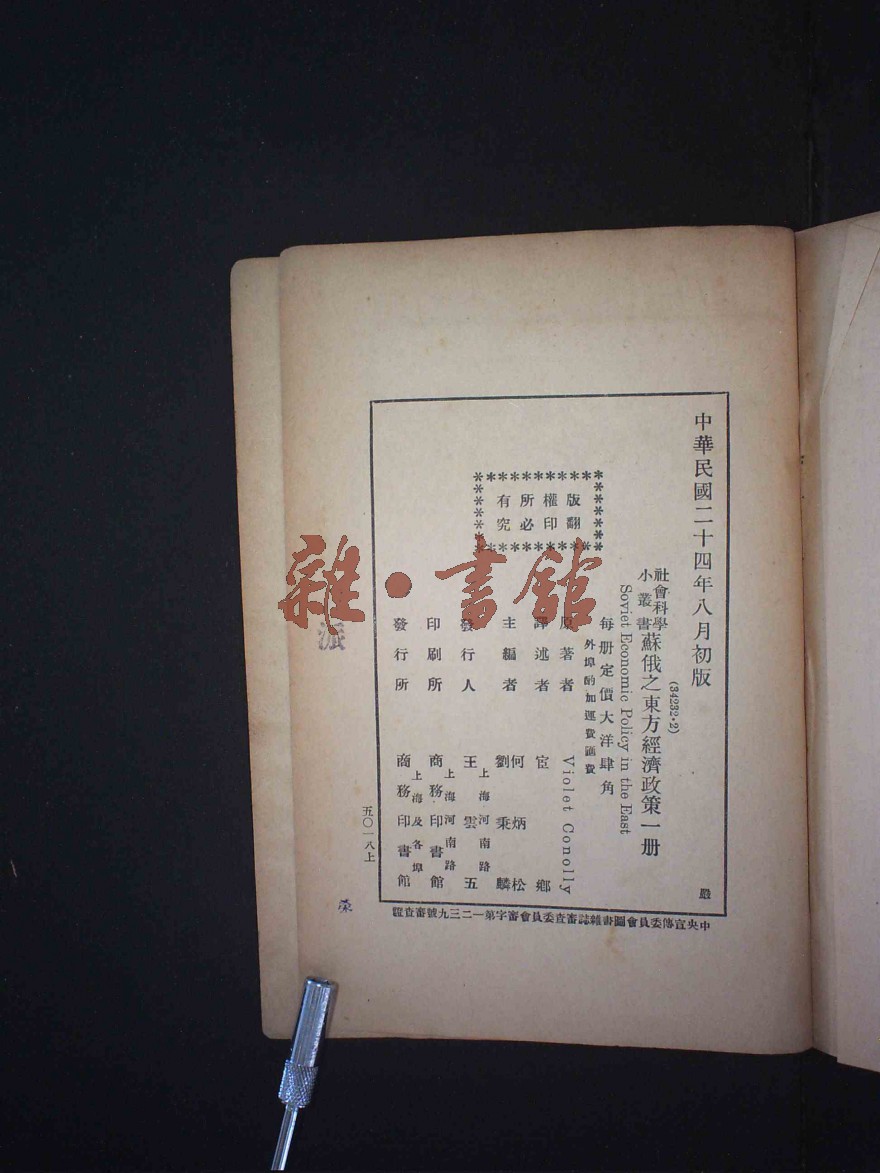 中華民國二十四年八月初版
(34232·2)
社會科學
小叢書
蘇俄之東方經濟政策一册
Soviet Economic Policy in the East
每册定價大洋肆角
外埠酌加運費匯費
版權所有
翻印必究
原著者 Violet Conolly
譯述者 宦鄉
主編者 何炳松
劉秉麟
發行人 王雲五
上海河南路
印刷所 商務印書館
上海河南路
發行所 商務印書館
上海及各埠
嚴
五〇一八上
中央宣傳委員會圖書雜誌審查委員會審字第一二三九號審查證
雜·書館
派